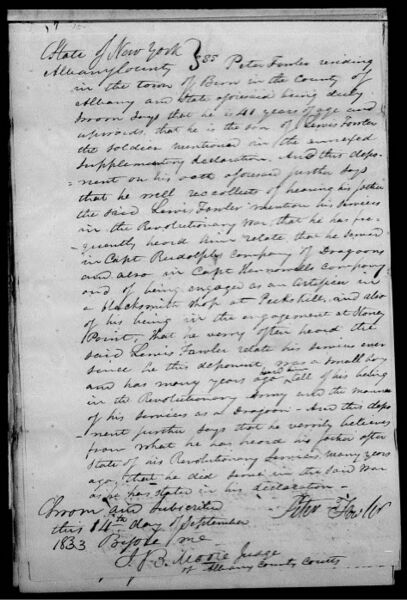 State of New York } SS Peter Fowler residing
Albany County
in the town of Bern in the County of
Albany and State aforesaid being duly
sworn Says that he is 41 years of age and
upwards, that he is the son of Lewis Fowler
the Soldier mentioned in the annexed
Supplementary declaration. And this depo
-nent on his oath aforesaid further Says
that he well recollects of hearing his father
the said Lewis Fowler mention his Services
in the Revolutionary War, that he has fre
-quently heard him relate that he Served
in Capt Rudolphs Company of Dragoons
and also in Capt Company
and of being engaged as an artificer in
a blacksmith shop at Peekskill, and also
of his being in the engagement at Stoney
Point, that he verry often heard the
said Lewis Fowler relate his services ever
since he this deponent was a small boy
and has many years ago heard him tell of his being
in the Revolutionary Army and the manner
of his services as a Dragoon - And this depo
nent further Says that he verrily believes
from what he has heard his father often
State of his Revolutionary Services many years
ago, that he did serve in the said War
as he has stated in his declaration -
Sworn and Subscribed
this 14th day of September
1833 Before me
Peter Fowler
J. B. Moore Judge
of Albany County Courts